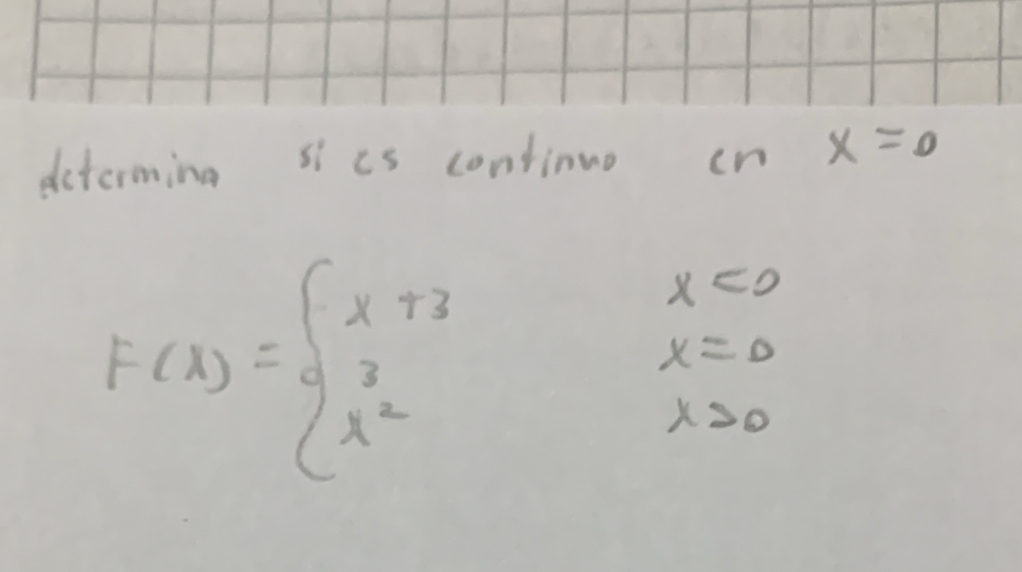 determina si es continuo en x = 0
x + 3 x < 0
F(x) = { 3 x = 0
x² x > 0